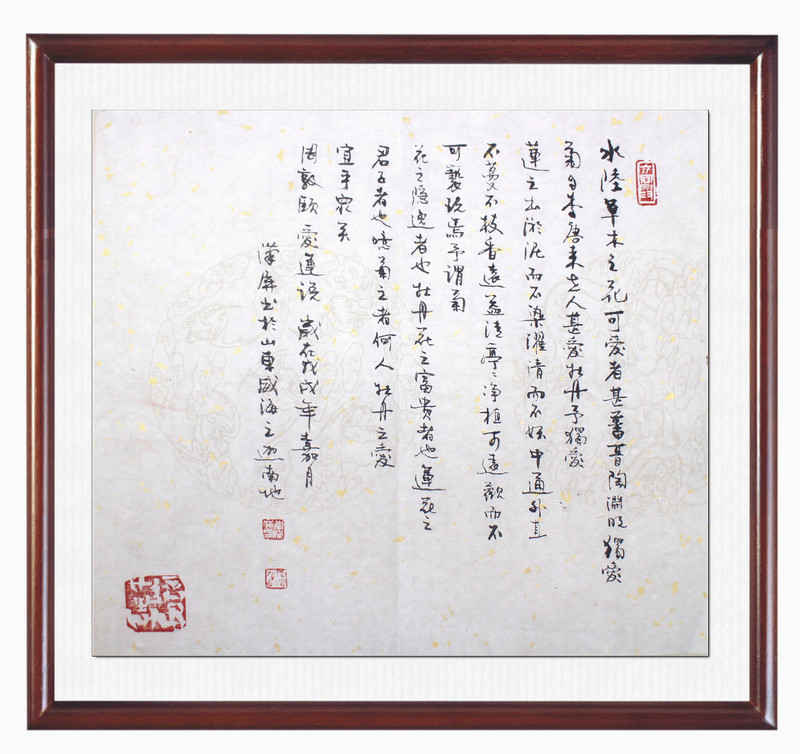 水陸草木之花可愛者甚蕃晉陶淵明獨愛
菊自李唐来世人甚愛牡丹予獨愛
蓮之出淤泥而不染濯清而不妖中通外直
不蔓不枝香遠益清亭〻净植可遠觀而不
可褻玩焉予謂菊
花之隱逸者也牡丹花之富貴者也蓮花之
君子者也噫菊之者何人牡丹之愛
宜乎衆矣
周敦頤愛蓮說 歲在戊戌年嘉月
屏书於山東威海之迦南地